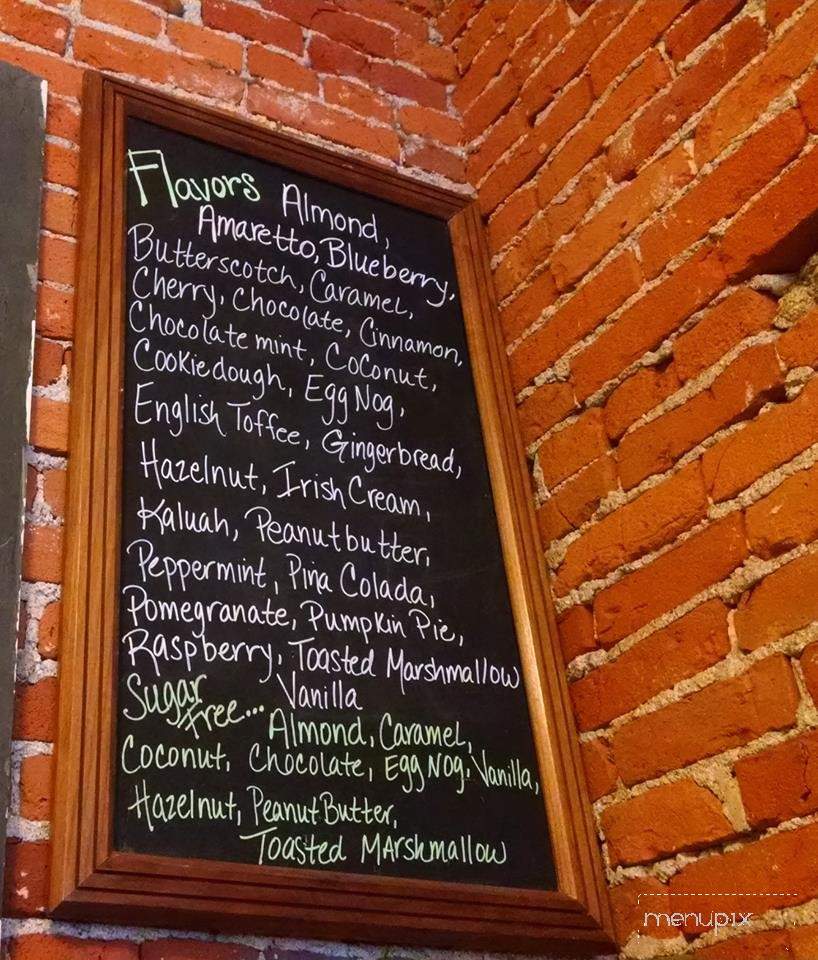 Flavors Almond,
Amaretto, Blueberry,
Butterscotch, Caramel,
Cherry, Chocolate, Cinnamon,
Chocolate mint, Coconut,
Cookie dough, Egg Nog,
English Toffee, Gingerbread,
Hazelnut, Irish Cream,
Kaluah, Peanut butter,
Peppermint, Piña Colada,
Pomegranate, Pumpkin Pie,
Raspberry, Toasted Marshmallow
Vanilla
Sugar free... Almond, Caramel,
Coconut, Chocolate, Egg Nog, Vanilla,
Hazelnut, Peanut Butter,
Toasted Marshmallow
menupix